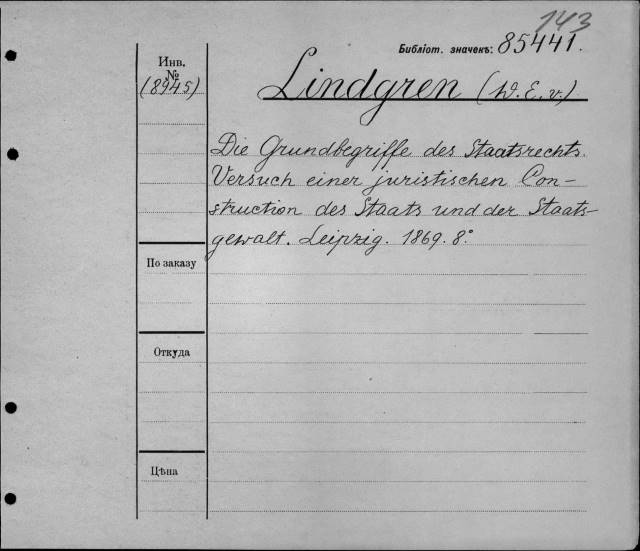 143
Библіот. значекъ: 85441.
Инв.
№
(8945)
Lindgren (W. E. v.)
Die Grundbegriffe des Staatsrechts.
Versuch einer juristischen Con-
struction des Staats und der Staats-
gewalt. Leipzig. 1869. 8°.
По заказу
Откуда
Цѣна